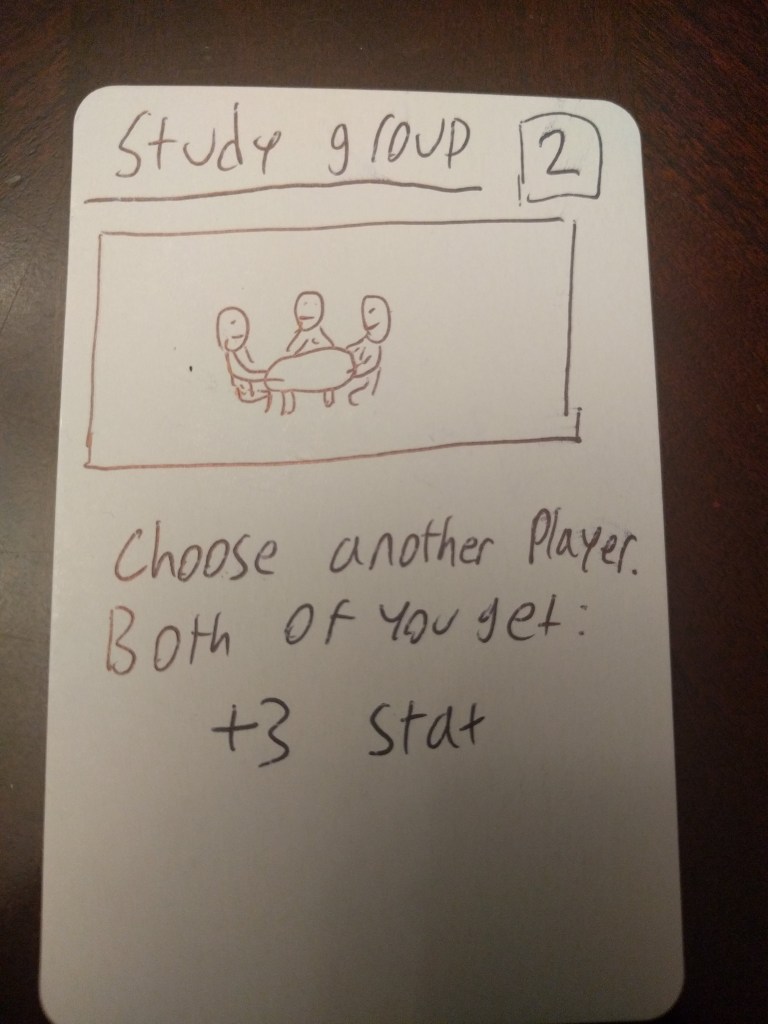 Study group 2
Choose another Player.
Both of you get:
+3 stat